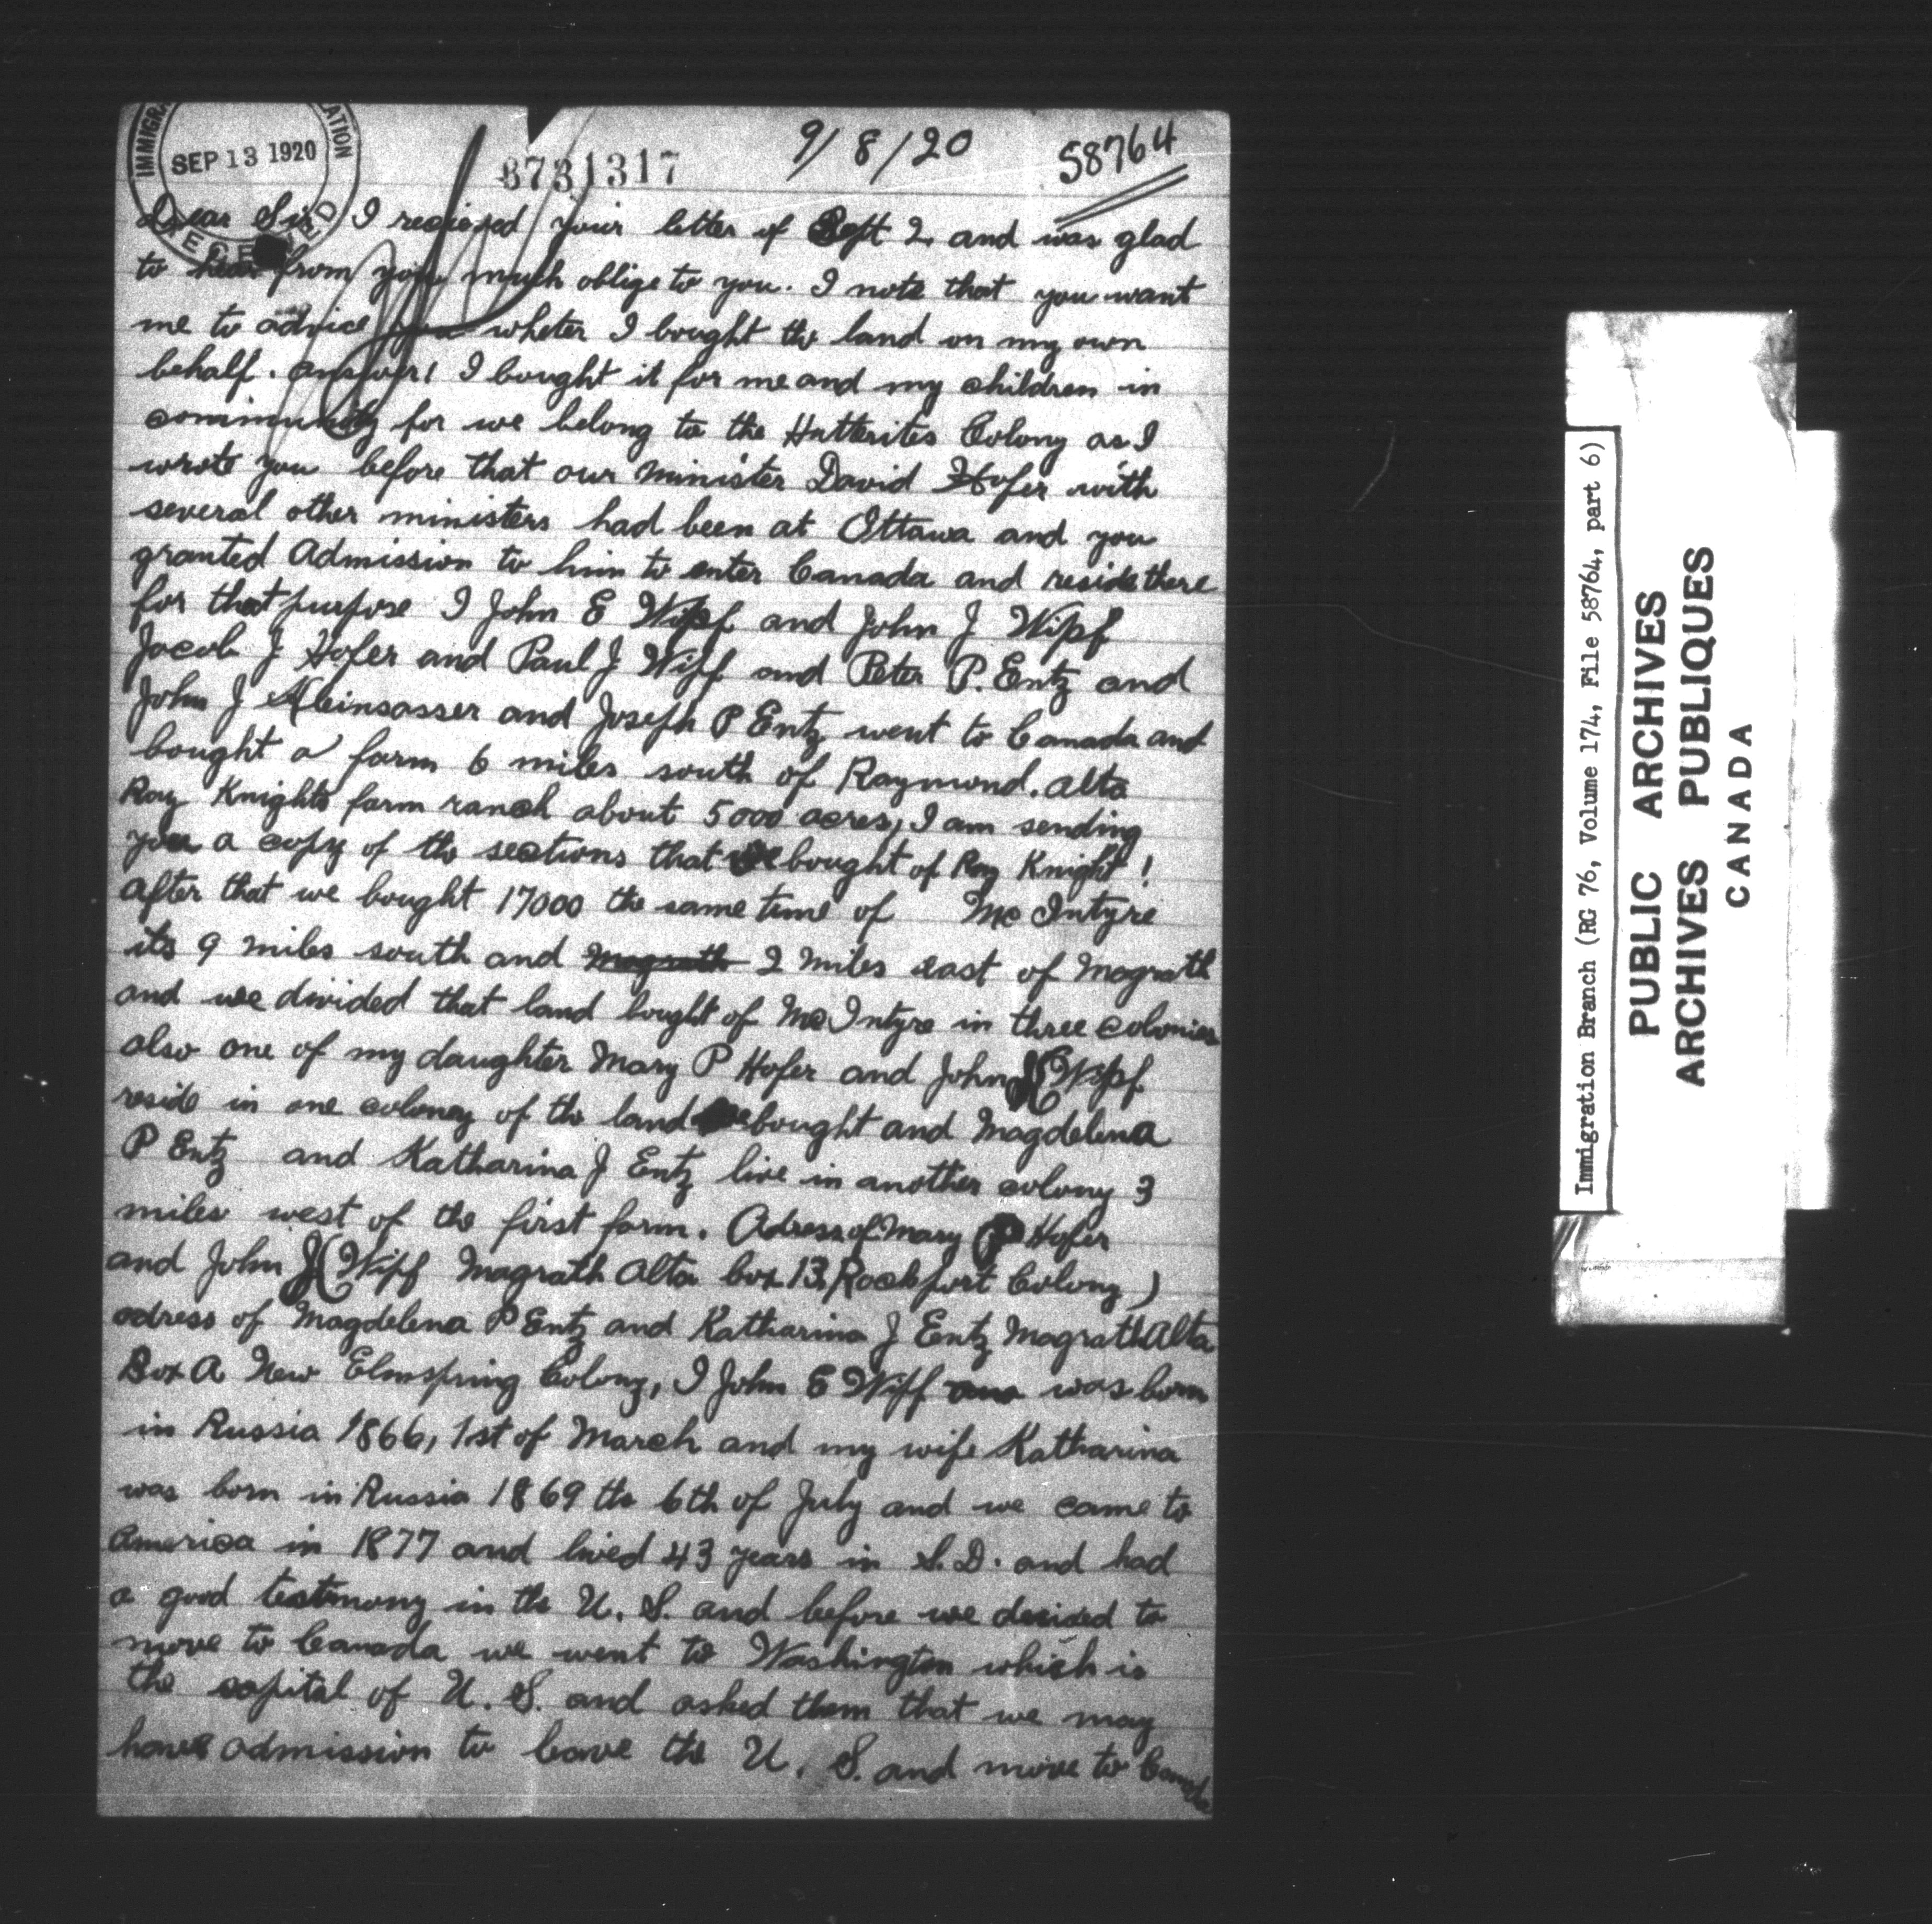 IMMIGRA ATION
SEP 13 1920
RECEIVED
8731317
9/8/20
58764
Dear Sir I recieved your letter of Sept 2 and was glad
to hear from you much oblige to you. I note that you want
me to advice you wheter I bought the land on my own
behalf. Answer! I bought it for me and my children in
community for we belong to the Hutterites Colony as I
wrote you before that our minister David Hofer with
several other ministers had been at Ottawa and you
granted Admission to him to enter Canada and reside there
for that purpose I John E Wipf and John J Wipf
Jacob J Hofer and Paul J Wipf and Peter P. Entz and
John J Kleinsasser and Joseph P Entz went to Canada and
bought a farm 6 miles south of Raymond. Alta
Ray Knights farm ranch about 5000 acres, I am sending
you a copy of the sections that we bought of Ray Knight!
After that we bought 17000 the same time of Mc Intyre
its 9 miles south and Magrath 2 miles east of Magrath
and we divided that land bought of McIntyre in three colonies
also one of my daughter Mary P Hofer and John Wipf
reside in one coloney of the land we bought and Magdelena
P Entz and Katharina J Entz live in another colony 3
miles west of the first farm. Adress of Mary P Hofer
and John Wipf Magrath Alta box 13, Rockfort Colony)
adress of Magdelena P Entz and Katharina J Entz Magrath Alta
Box A New Elmspring Colony, I John E Wipf was born
in Russia 1866, 1st of March and my wife Katharina
was born in Russia 1869 the 6th of July and we came to
America in 1877 and lived 43 years in S.D. and had
a good testimony in the U. S. and before we desided to
move to Canada we went to Washington which is
the capital of U. S. and asked them that we may
have admission to leave the U. S. and move to Canada
Immigration Branch (RG 76, Volume 174, File 58764, part 6)
PUBLIC ARCHIVES
ARCHIVES PUBLIQUES
CANADA